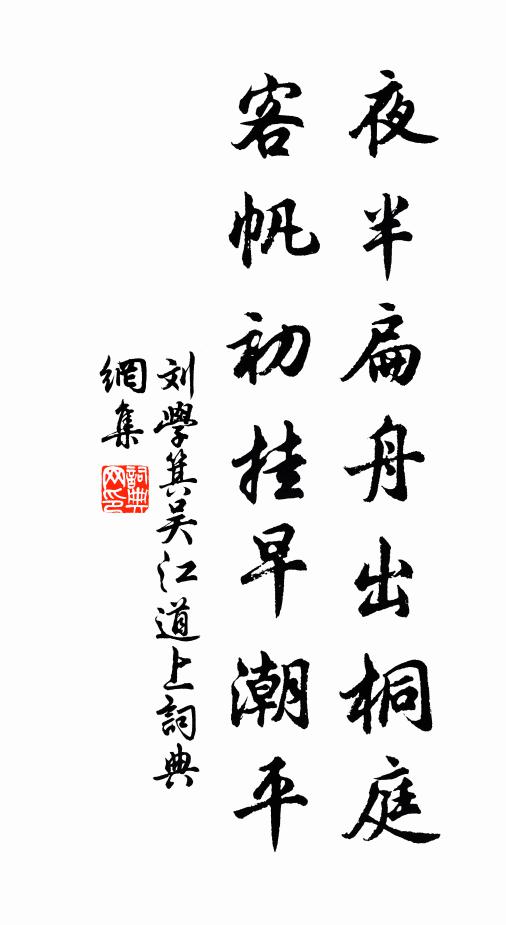 夜半扁舟出桐庭
客帆初挂早潮平
刘學箕吴江道上詞典
網集
詞典網印